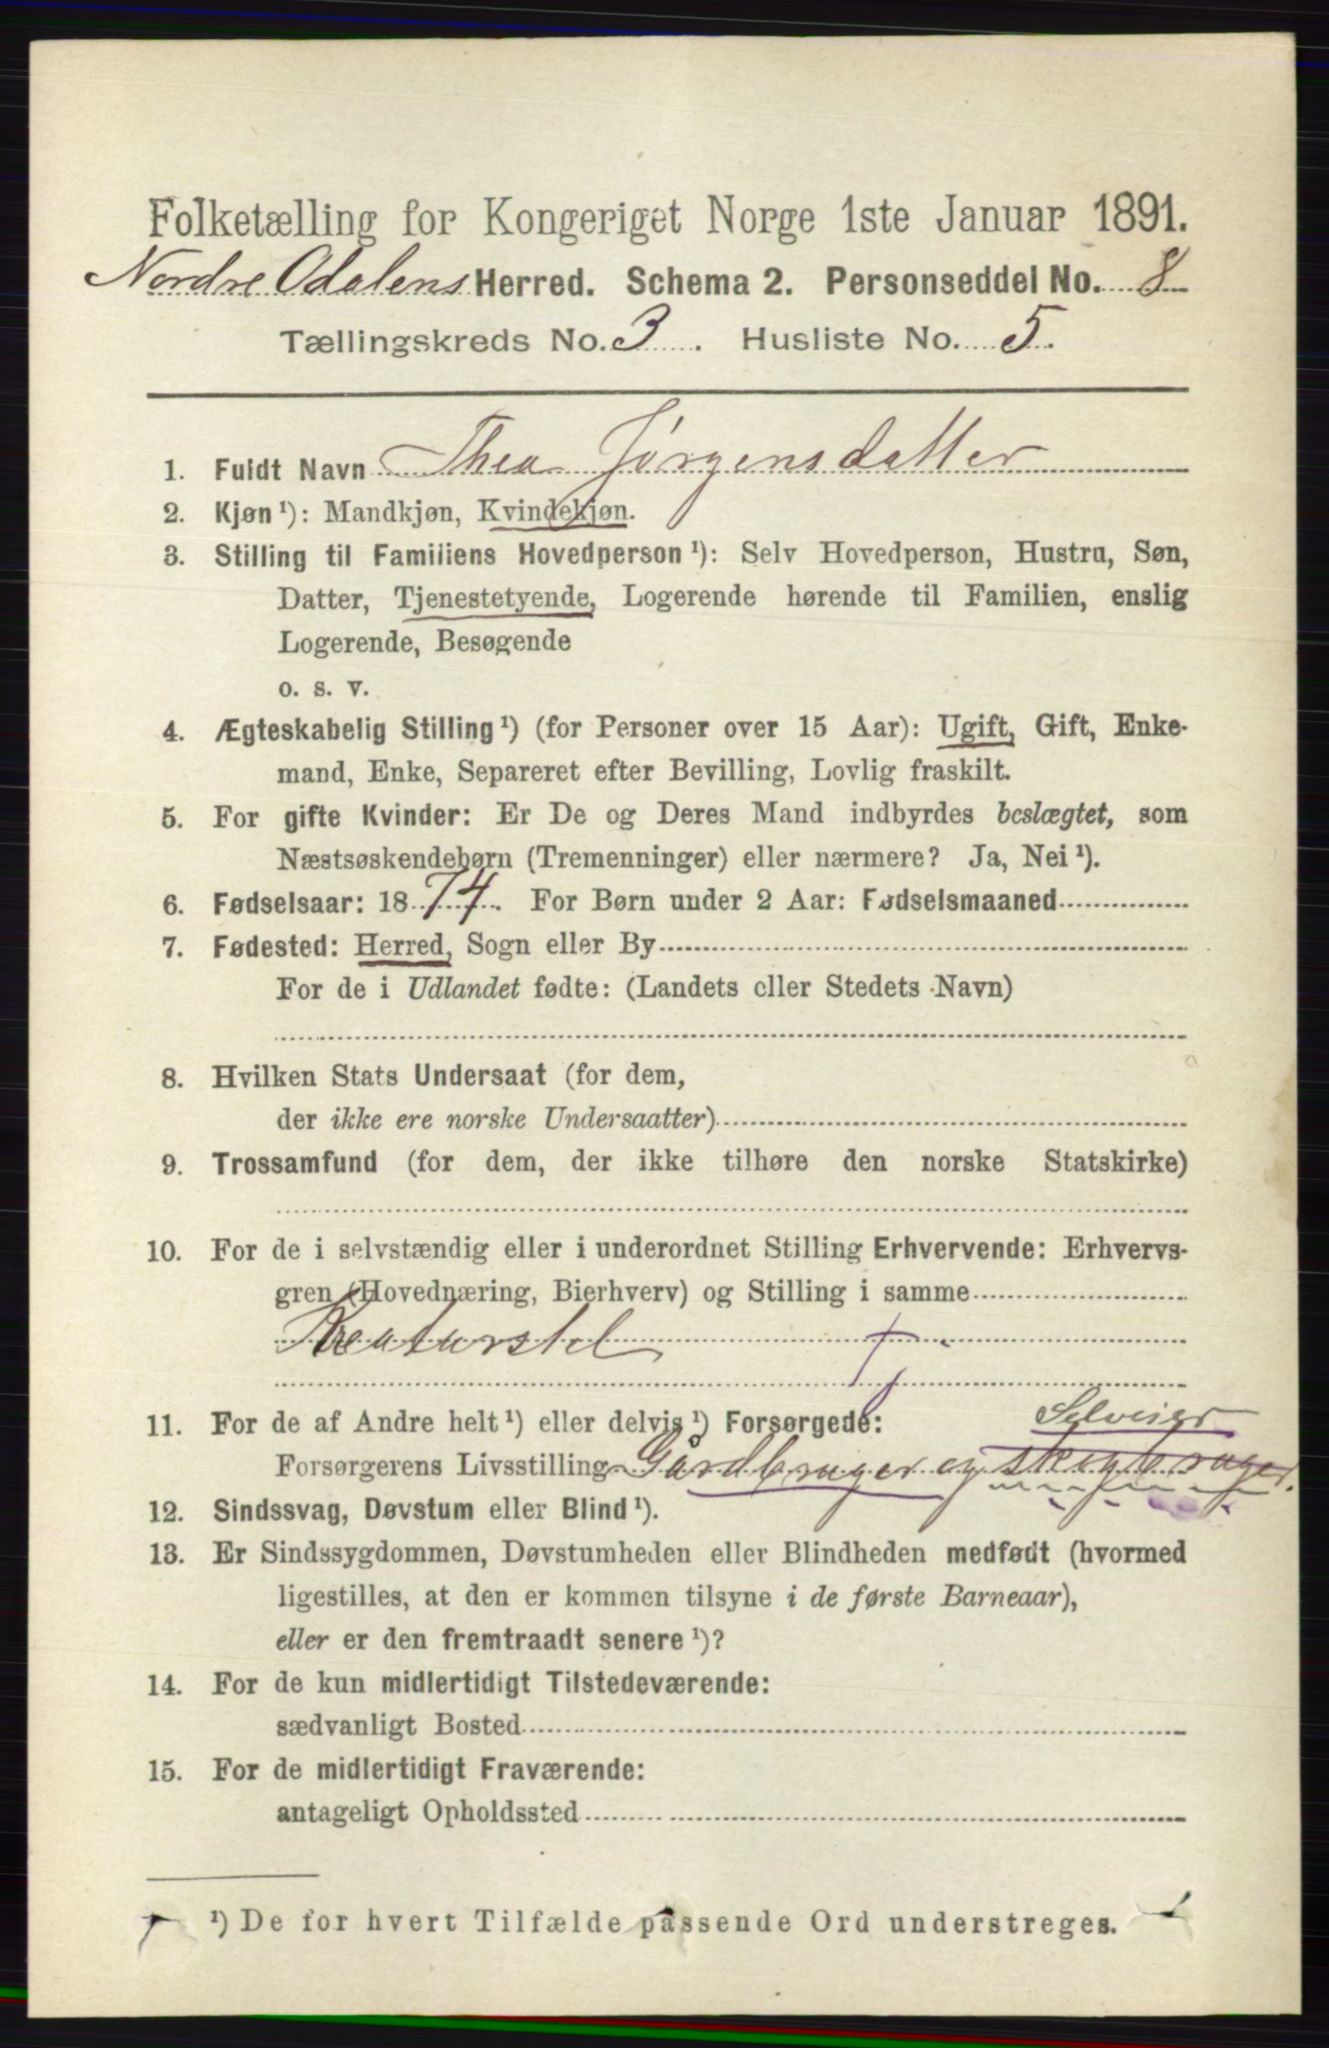 Folketælling for Kongeriget Norge 1ste Januar 1891.
Nordre Odalens Herred. Schema 2. Personseddel No. 8
Tællingskreds No. 3. Husliste No. 5.
1. Fuldt Navn Thea Jørgensdatter
2. Kjøn¹): Mandkjøn, Kvindekjøn.
3. Stilling til Familiens Hovedperson¹): Selv Hovedperson, Hustru, Søn,
Datter, Tjenestetyende, Logerende hørende til Familien, enslig
Logerende, Besøgende
o. s. v.
4. Ægteskabelig Stilling¹) (for Personer over 15 Aar): Ugift, Gift, Enke-
mand, Enke, Separeret efter Bevilling, Lovlig fraskilt.
5. For gifte Kvinder: Er De og Deres Mand indbyrdes beslægtet, som
Næstsøskendebørn (Tremenninger) eller nærmere? Ja, Nei¹).
6. Fødselsaar: 1874. For Børn under 2 Aar: Fødselsmaaned
7. Fødested: Herred, Sogn eller By
For de i Udlandet fødte: (Landets eller Stedets Navn)
8. Hvilken Stats Undersaat (for dem,
der ikke ere norske Undersaatter)
9. Trossamfund (for dem, der ikke tilhøre den norske Statskirke)
10. For de i selvstændig eller i underordnet Stilling Erhvervende: Erhvervs-
gren (Hovednæring, Bierhverv) og Stilling i samme
Kreaturstel
11. For de af Andre helt¹) eller delvis¹) Forsørgede:
Selveier
Forsørgerens Livsstilling Gårdbruger og skogbruger.
12. Sindssvag, Døvstum eller Blind¹).
13. Er Sindssygdommen, Døvstumheden eller Blindheden medfødt (hvormed
ligestilles, at den er kommen tilsyne i de første Barneaar),
eller er den fremtraadt senere¹)?
14. For de kun midlertidigt Tilstedeværende:
sædvanligt Bosted
15. For de midlertidigt Fraværende:
antageligt Opholdssted
¹) De for hvert Tilfælde passende Ord understreges.